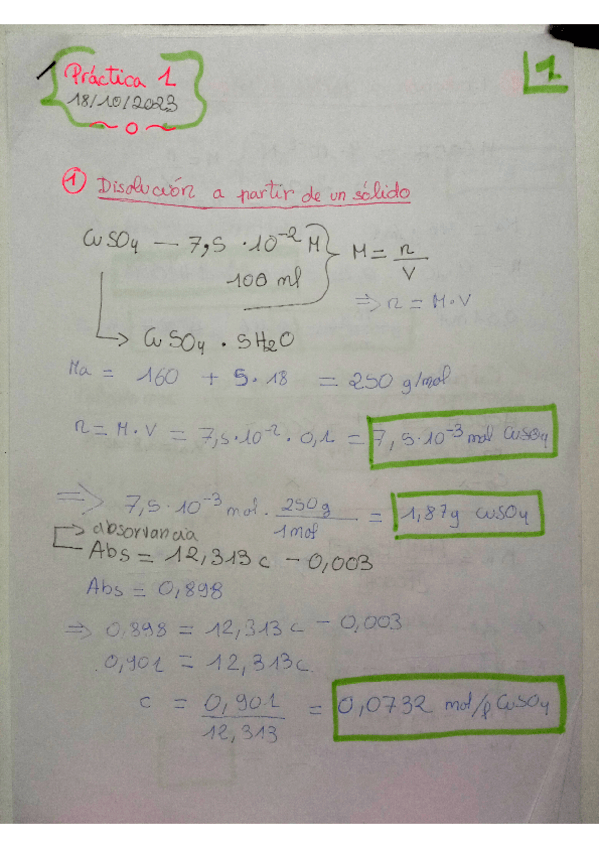 Práctica 1
1
18/10/2023
① Disolución a partir de un sólido
CuSO4 — 7,5 · 10⁻² M
M = n/V
100 ml
⇒ n = M·V
CuSO4 · 5H2O
Ma = 160 + 5·18 = 250 g/mol
n = M·V = 7,5·10⁻² · 0,1 = 7,5·10⁻³ mol CuSO4
⇒ 7,5·10⁻³ mol · 250g/1mol = 1,87g CuSO4
→ absorvancia
Abs = 12,313 c – 0,003
Abs = 0,898
⇒ 0,898 = 12,313 c – 0,003
0,901 = 12,313c
c = 0,901/12,313 = 0,0732 mol/l CuSO4